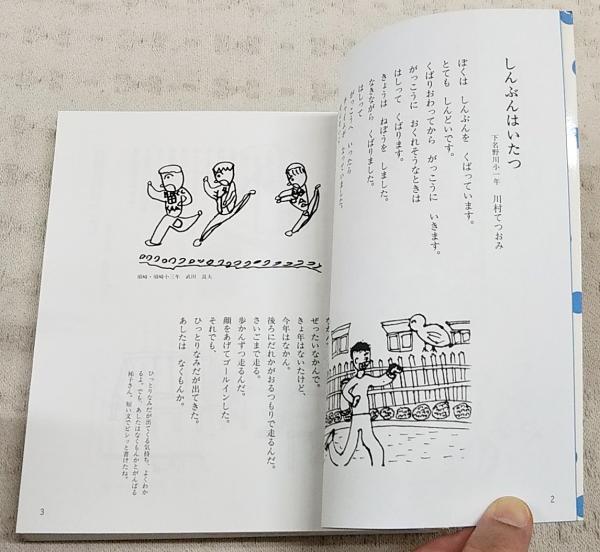 しんぶんはいたつ
下名野川小一年　川村てつおみ
ぼくは　しんぶんを　くばっています。
とても　しんどいです。
くばりおわってから　がっこうに　いきます。
がっこうに　おくれそうなときは
はしって　くばります。
きょうは　ねぼうを　しました。
なきながら　くばりました。
はしって
がっこうへ　いったら
2
ぜったいなかんで。
きょ年はないたけど、
今年はなかん。
後ろにだれかがおるつもりで走るんだ。
さいごまで走る。
歩かんずつ走るんだ。
顔をあげてゴールインした。
それでも、
ひっとりなみだが出てきた。
あしたは　なくもんか。
ひっとりなみだが出てくる気持ち、よくわか
るよ。でも、あしたはなくもんかとがんばる
祐子さん。短い文でピシッと書けたね。
須崎・須崎小三年　武田　昌大
3